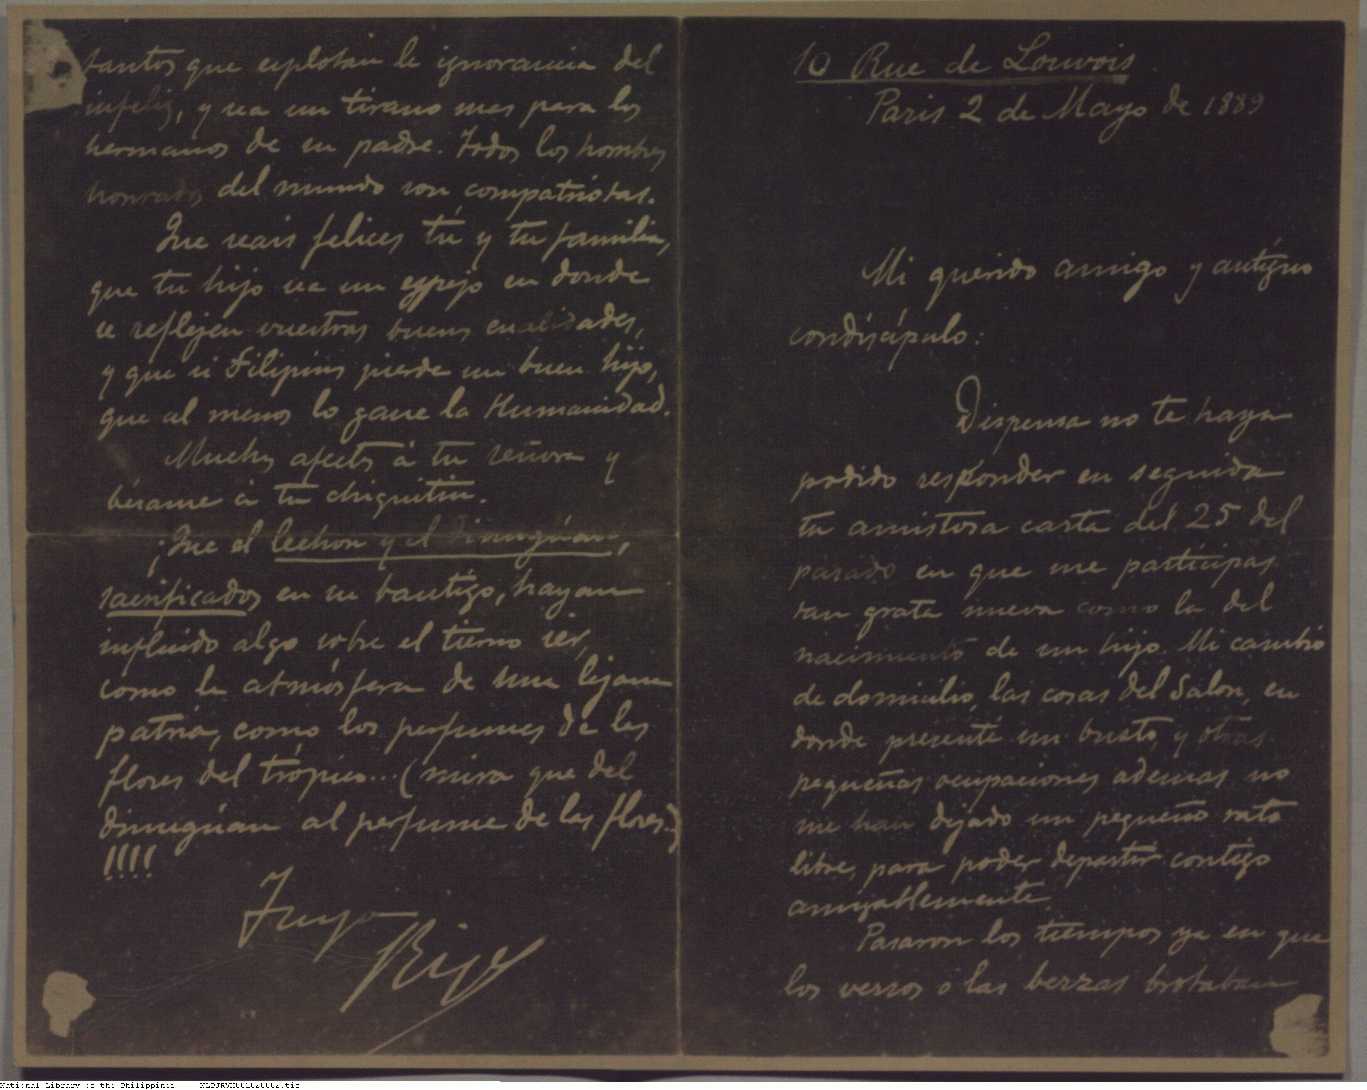 10 Rue de Louvois
Paris 2 de Mayo de 1889
Mi querido amigo y antíguo
condiscípulo:
Dispensa no te haya
podido responder en seguida
tu amistosa carta del 25 del
pasado en que me participas
tan grata nueva como la del
nacimiento de un hijo. Mi cambio
de domicilio, las cosas del Salon, en
donde presenté un busto, y otras
pequeñas ocupaciones ademas no
me han dejado un pequeño rato
libre, para poder departir contigo
amigablemente
Pasaron los tiempos ya en que
los versos o las berzas brotaban
tantos que esplotan la ignorancia del
infeliz, y sea un tirano mas para los
hermanos de su padre. Todos los hombres
honrados del mundo son compatriotas.
Que seais felices tú y tu familia,
que tu hijo sea un espejo en donde
se reflejen vuestras buenas cualidades,
y que si Filipinas pierde un buen hijo,
que al menos lo gane la Humanidad.
Muchos afectos á tu señora y
bésame á tu chiquitin.
¡Que el lechon y el dinuguan,
sacrificados en su bautizo, hayan
influido algo sobre el tierno ser,
como la atmósfera de una lejana
patria, como los perfumes de las
flores del trópico... (mira que del
dinuguan al perfume de las flores.)
!!!!
Tuyo
Rizal
National Library of the Philippines